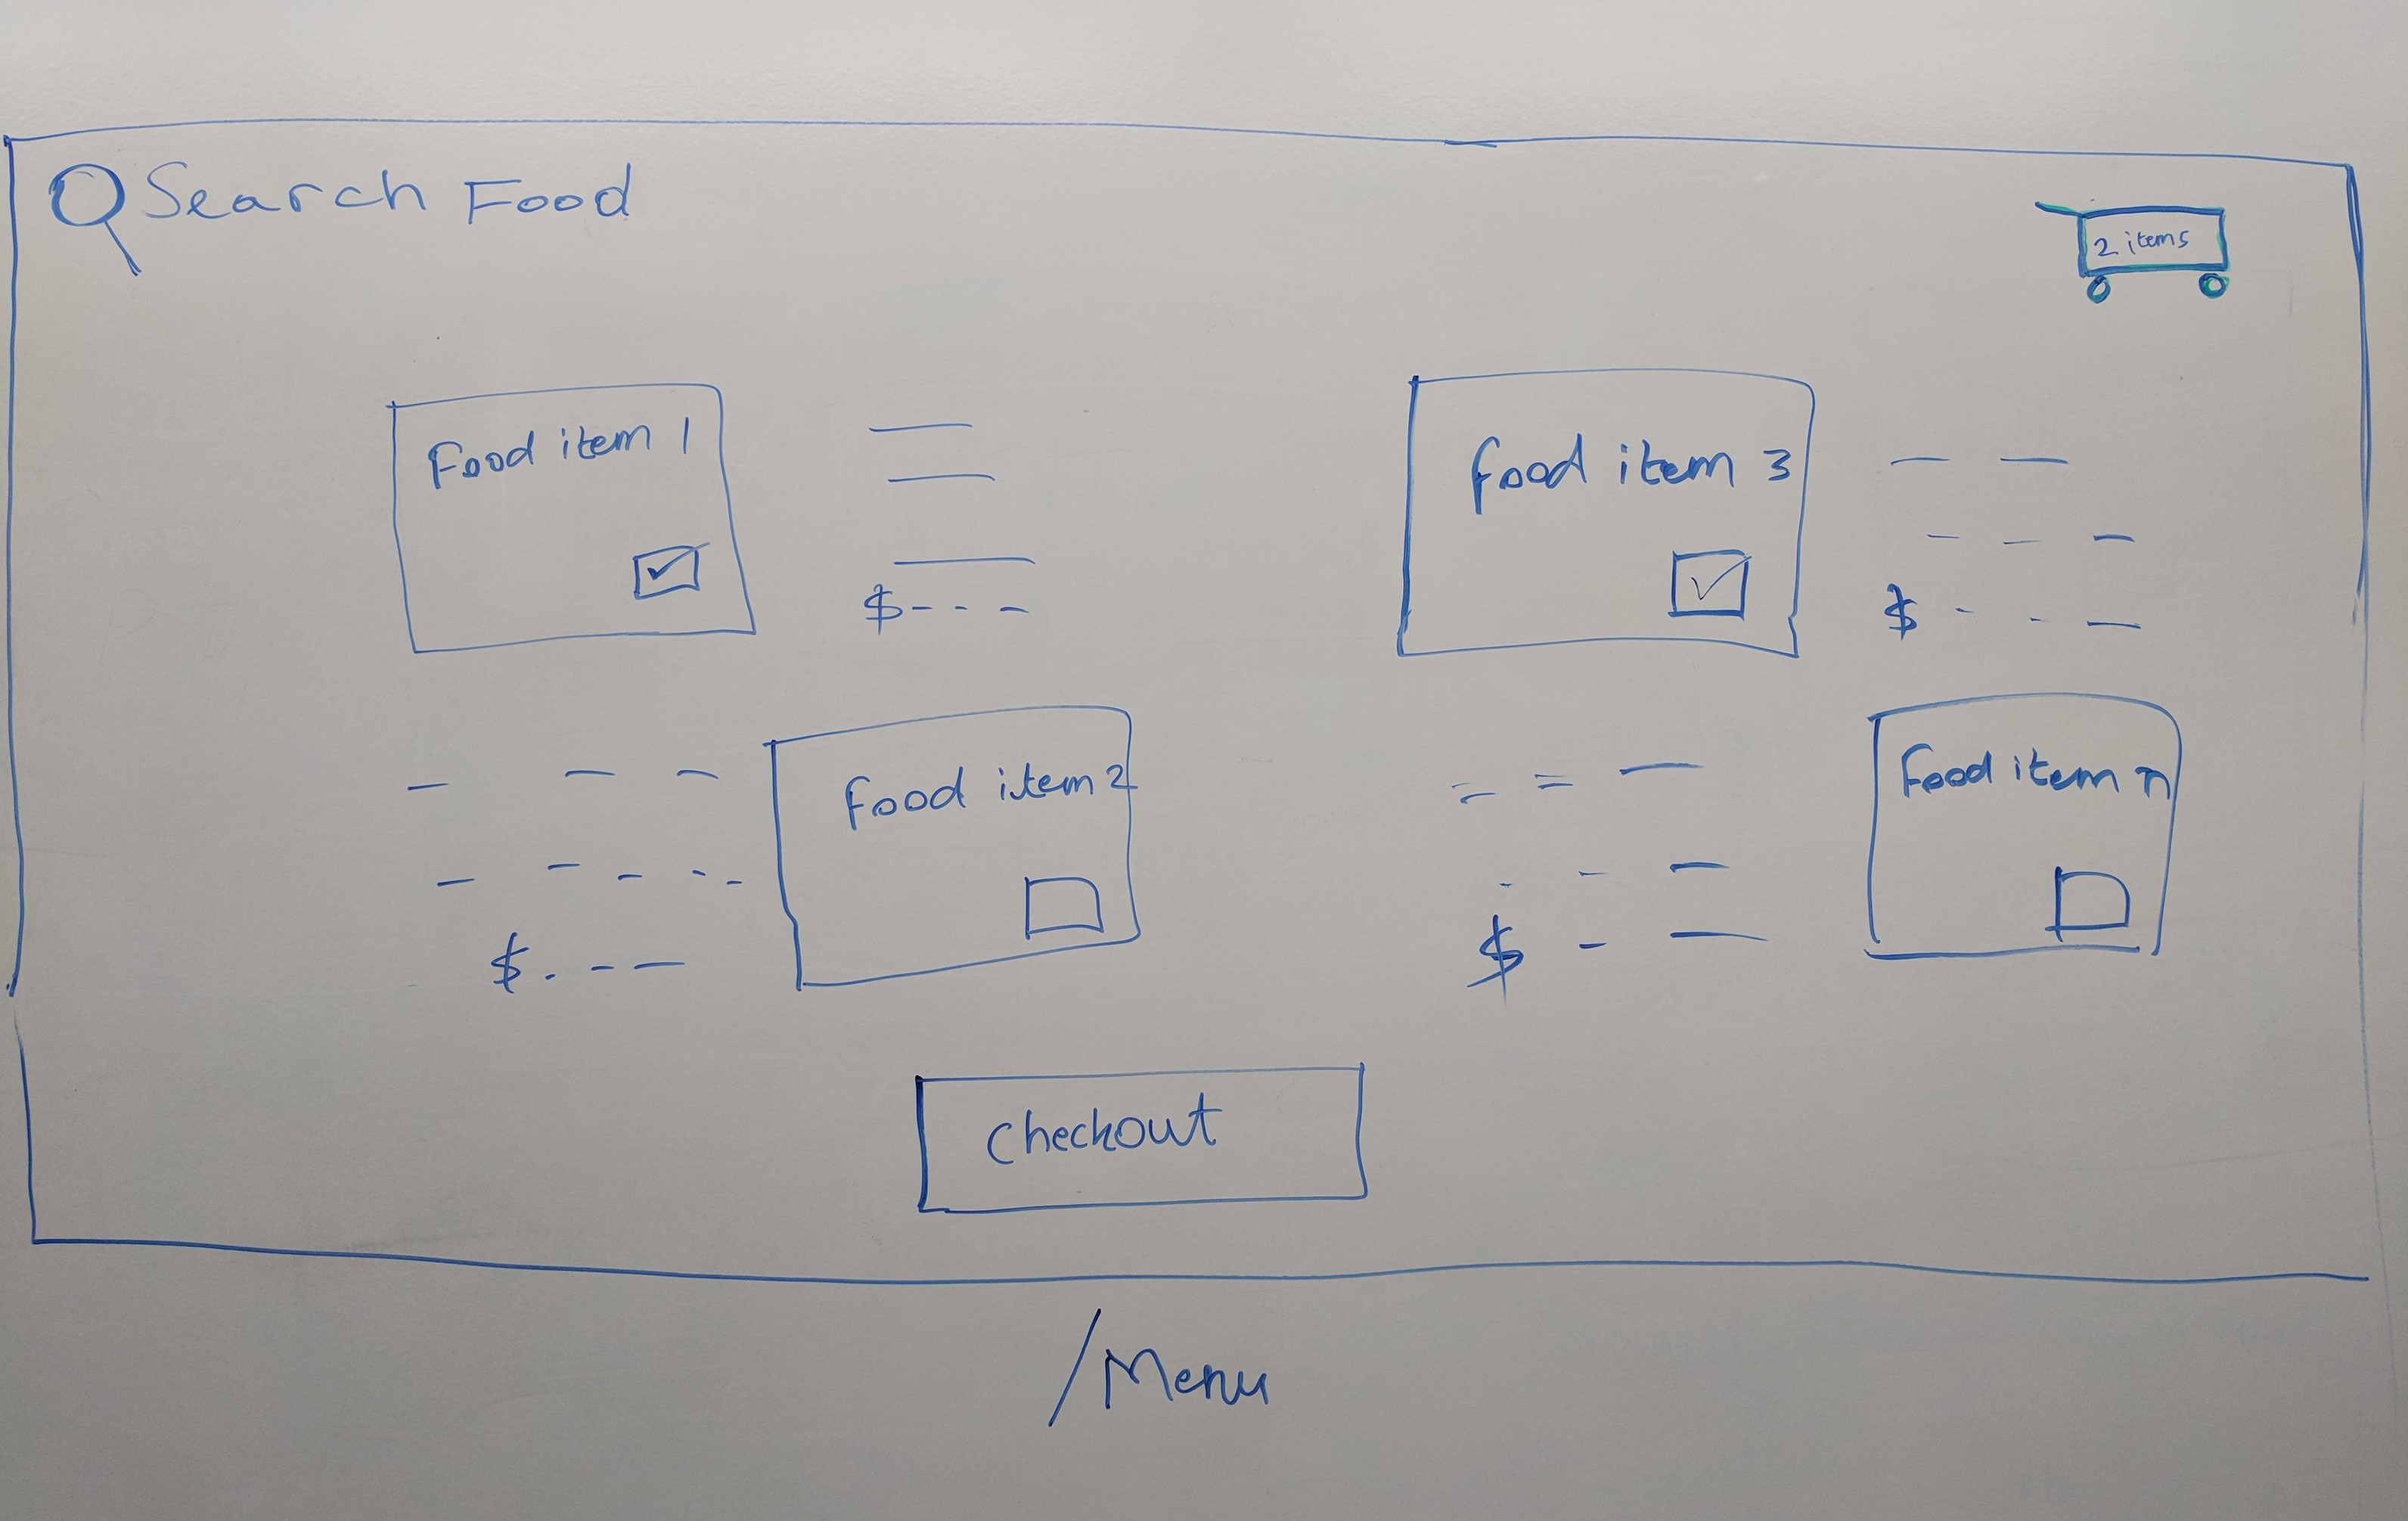 Search Food
2 items
Food item 1
$
Food item 3
$
Food item 2
$
Food item n
$
Checkout
/Menu